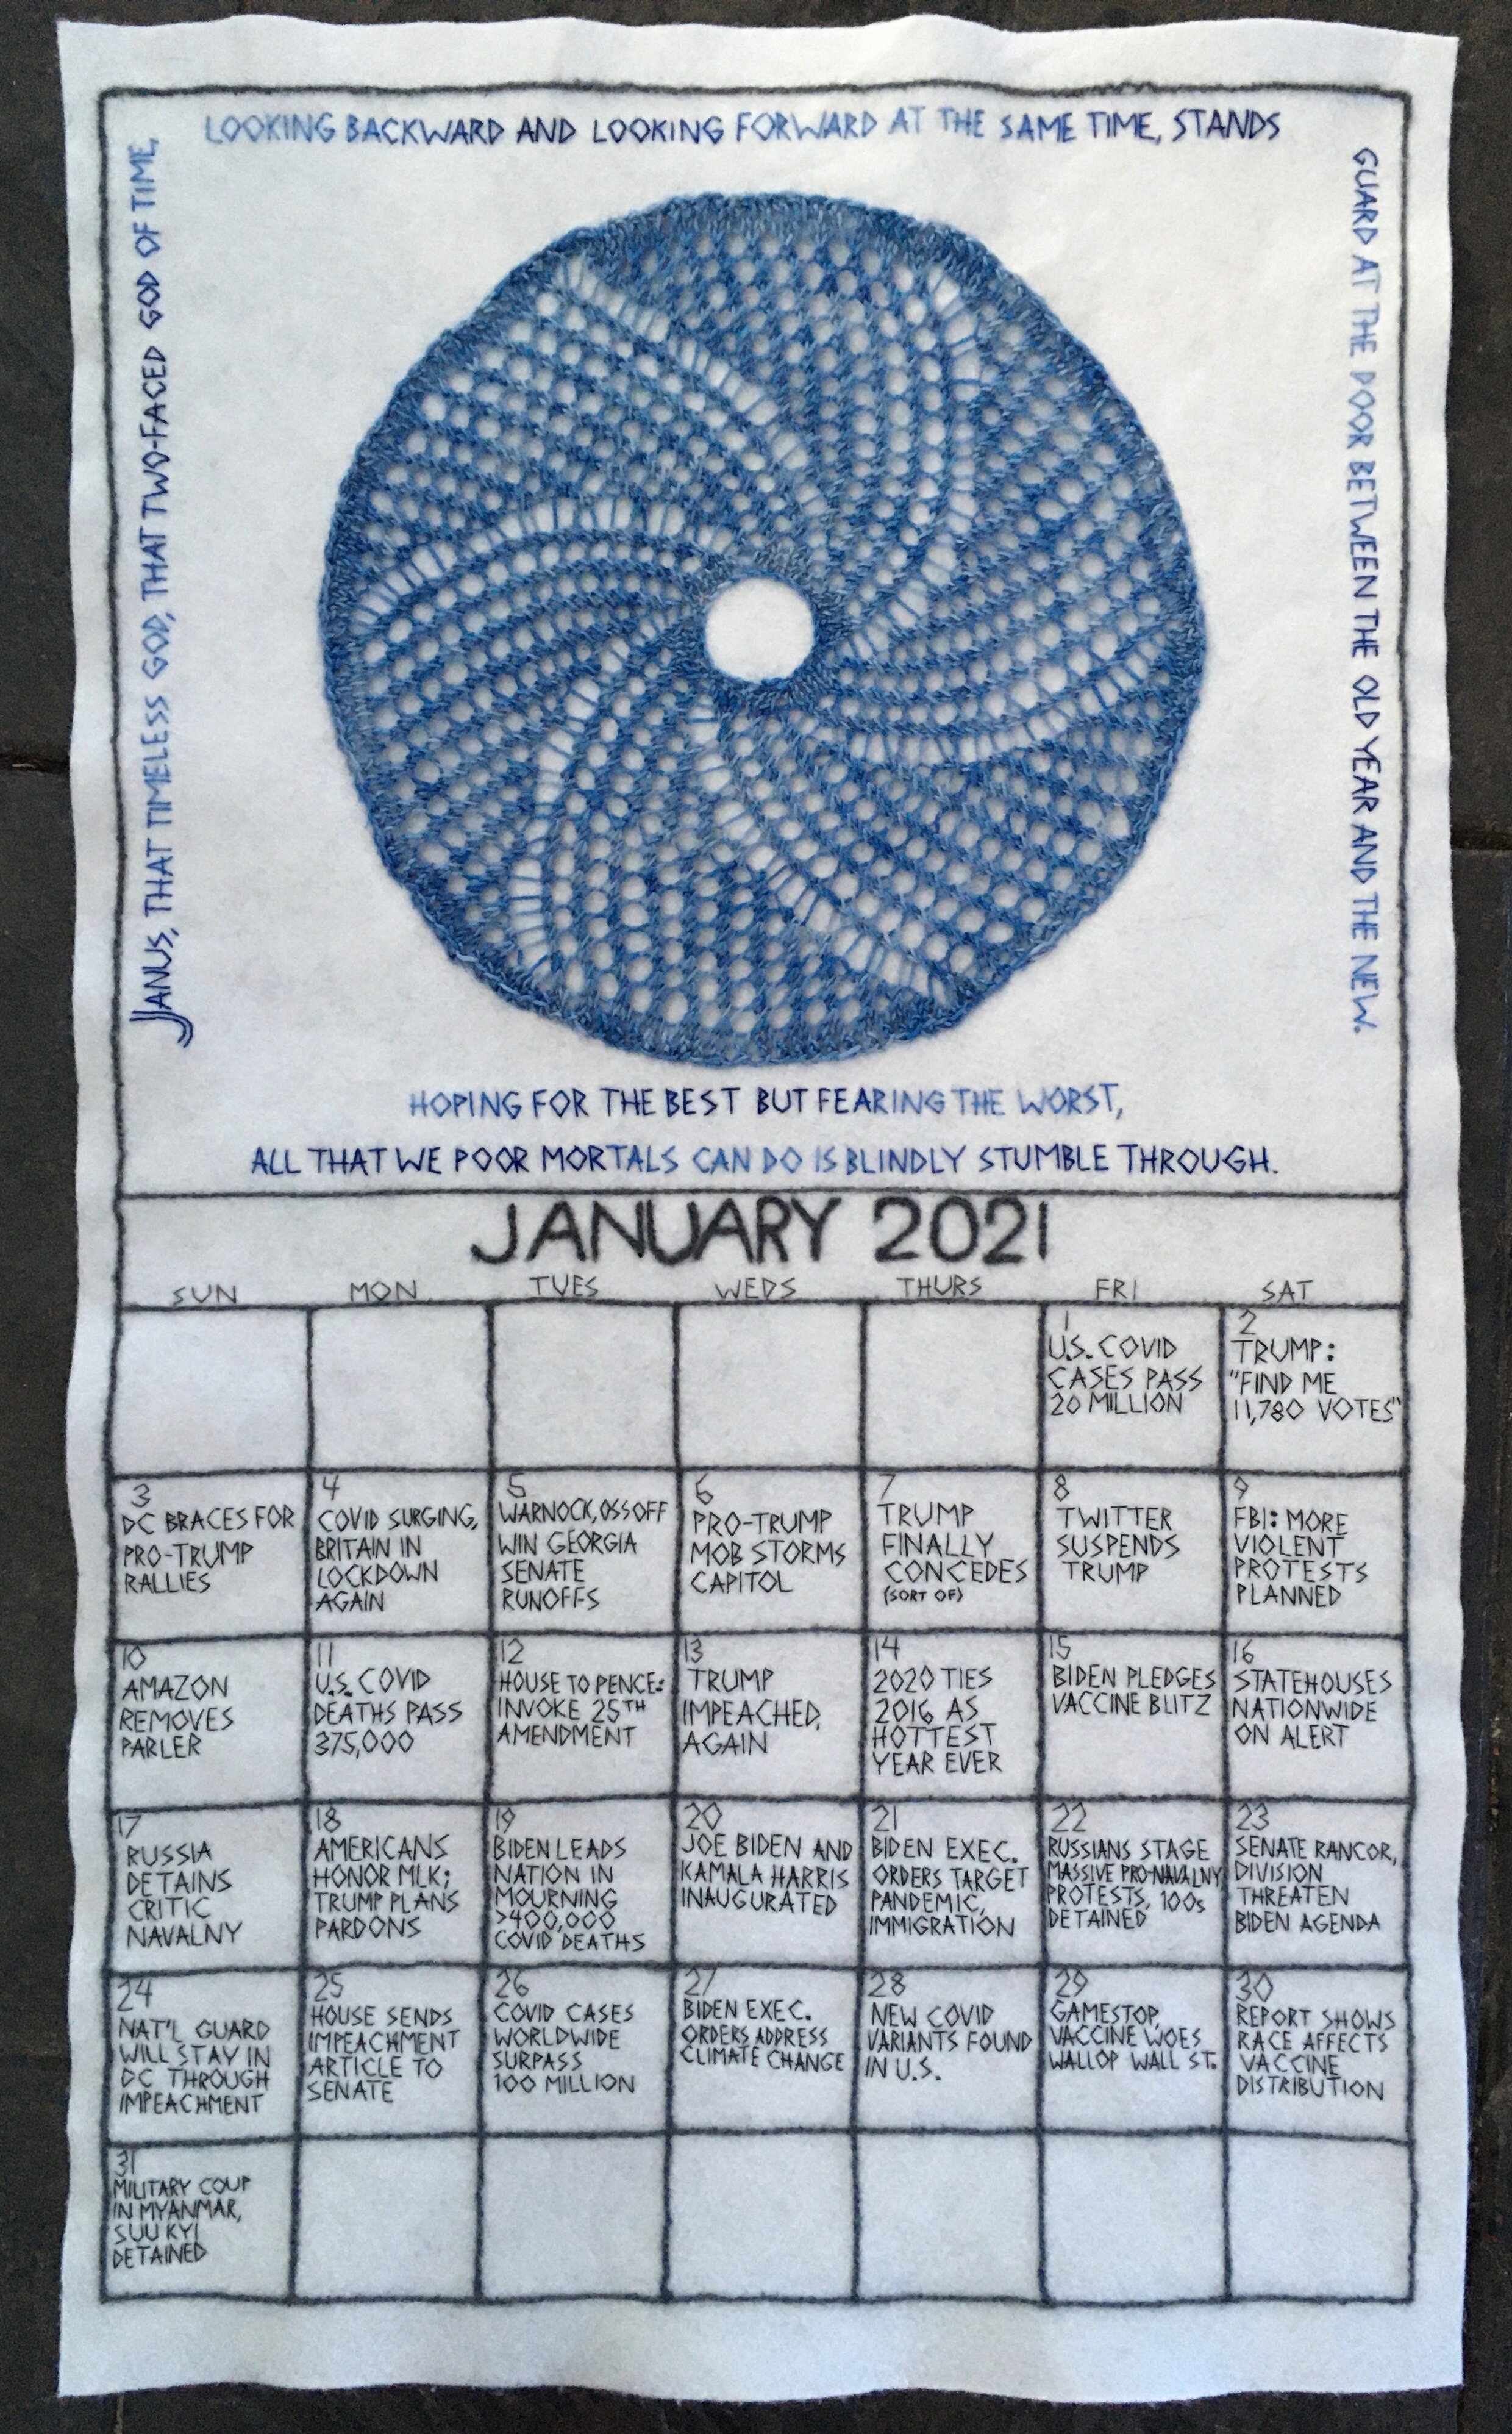 JANUS, THAT TIMELESS GOD, THAT TWO-FACED GOD OF TIME,
LOOKING BACKWARD AND LOOKING FORWARD AT THE SAME TIME, STANDS
GUARD AT THE DOOR BETWEEN THE OLD YEAR AND THE NEW.
HOPING FOR THE BEST BUT FEARING THE WORST,
ALL THAT WE POOR MORTALS CAN DO IS BLINDLY STUMBLE THROUGH.
JANUARY 2021
SUN MON TUES WEDS THURS FRI SAT
1
U.S. COVID
CASES PASS
20 MILLION
2
TRUMP:
"FIND ME
11,780 VOTES"
3
DC BRACES FOR
PRO-TRUMP
RALLIES
4
COVID SURGING,
BRITAIN IN
LOCKDOWN
AGAIN
5
WARNOCK, OSSOFF
WIN GEORGIA
SENATE
RUNOFFS
6
PRO-TRUMP
MOB STORMS
CAPITOL
7
TRUMP
FINALLY
CONCEDES
(SORT OF)
8
TWITTER
SUSPENDS
TRUMP
9
FBI: MORE
VIOLENT
PROTESTS
PLANNED
10
AMAZON
REMOVES
PARLER
11
U.S. COVID
DEATHS PASS
375,000
12
HOUSE TO PENCE:
INVOKE 25TH
AMENDMENT
13
TRUMP
IMPEACHED,
AGAIN
14
2020 TIES
2016 AS
HOTTEST
YEAR EVER
15
BIDEN PLEDGES
VACCINE BLITZ
16
STATEHOUSES
NATIONWIDE
ON ALERT
17
RUSSIA
DETAINS
CRITIC
NAVALNY
18
AMERICANS
HONOR MLK;
TRUMP PLANS
PARDONS
19
BIDEN LEADS
NATION IN
MOURNING
>400,000
COVID DEATHS
20
JOE BIDEN AND
KAMALA HARRIS
INAUGURATED
21
BIDEN EXEC.
ORDERS TARGET
PANDEMIC,
IMMIGRATION
22
RUSSIANS STAGE
MASSIVE PRO-NAVALNY
PROTESTS, 100s
DETAINED
23
SENATE RANCOR,
DIVISION
THREATEN
BIDEN AGENDA
24
NAT'L GUARD
WILL STAY IN
DC THROUGH
IMPEACHMENT
25
HOUSE SENDS
IMPEACHMENT
ARTICLE TO
SENATE
26
COVID CASES
WORLDWIDE
SURPASS
100 MILLION
27
BIDEN EXEC.
ORDERS ADDRESS
CLIMATE CHANGE
28
NEW COVID
VARIANTS FOUND
IN U.S.
29
GAMESTOP,
VACCINE WOES
WALLOP WALL ST.
30
REPORT SHOWS
RACE AFFECTS
VACCINE
DISTRIBUTION
31
MILITARY COUP
IN MYANMAR,
SUU KYI
DETAINED